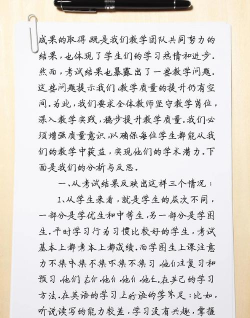 成果的取得,既是我们教学团队共同努力的
结果,也体现了学生们的学习热情和进步。
然而,考试结果也暴露出了一些教学问题,
这些问题提示我们,教学质量的提升仍有空
间。为此,我们要求全体教师坚守教学岗位,
深入教学实践,稳步提升教学质量。我们必
须增强质量意识,以确保每位学生都能从我
们的教学中获益,实现他们的学术潜力。下
面是我们的分析与反思。
一、从考试结果反映出这样三个情况:
1.从学生来看,就是学生的层次不同,
一部分是学优生和中等生,另一部分是学困
生。平时学习行为习惯比较好的学生,考试
基本上都考本上都成绩。而学困生上课注意
力不集中集不集不集不集习,他们注复习和
预习,他们 他们,他们,他们,在自己的学习
方法,在英语的学习上 语的学不足:比如,
听说读写的能力较差,学习没有兴趣,掌握